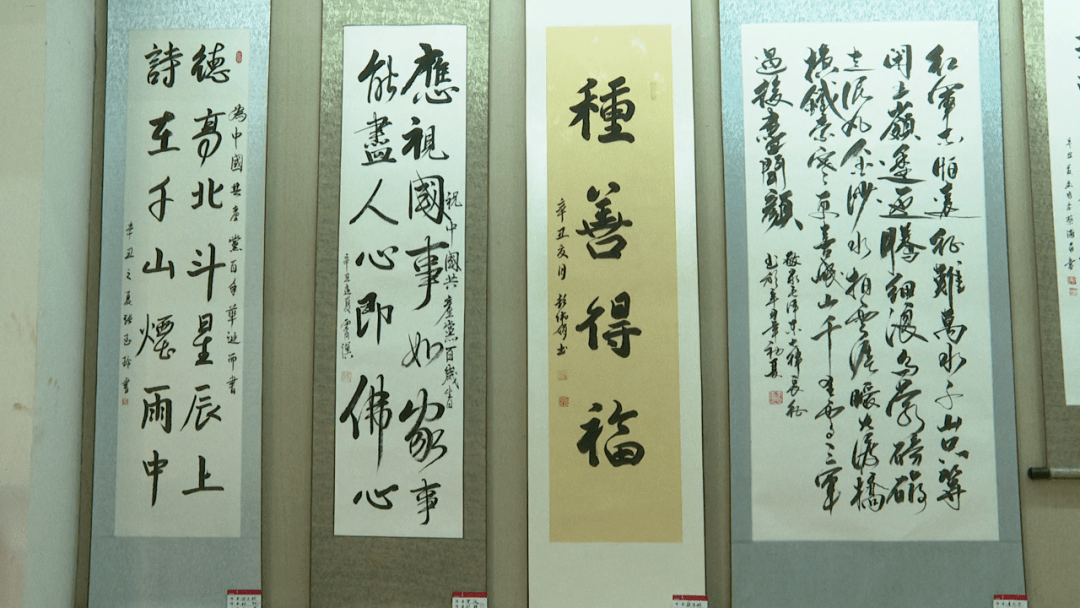 為中國共產黨百年華誕而書
德高北斗星辰上
詩在千山煙雨中
辛丑之夏
祝中國共產黨百歲
應視國事如家事
能盡人心即佛心
辛丑
種善得福
辛丑亥月
红軍不怕遠征難萬水千山只等
閒五嶺逶迤騰細浪烏蒙磅礴
走泥丸金沙水拍雲崖暖大渡橋
横鐵索寒更喜岷山千里雪三軍
過後盡開顏
敬录毛泽東七律長征
辛丑初夏